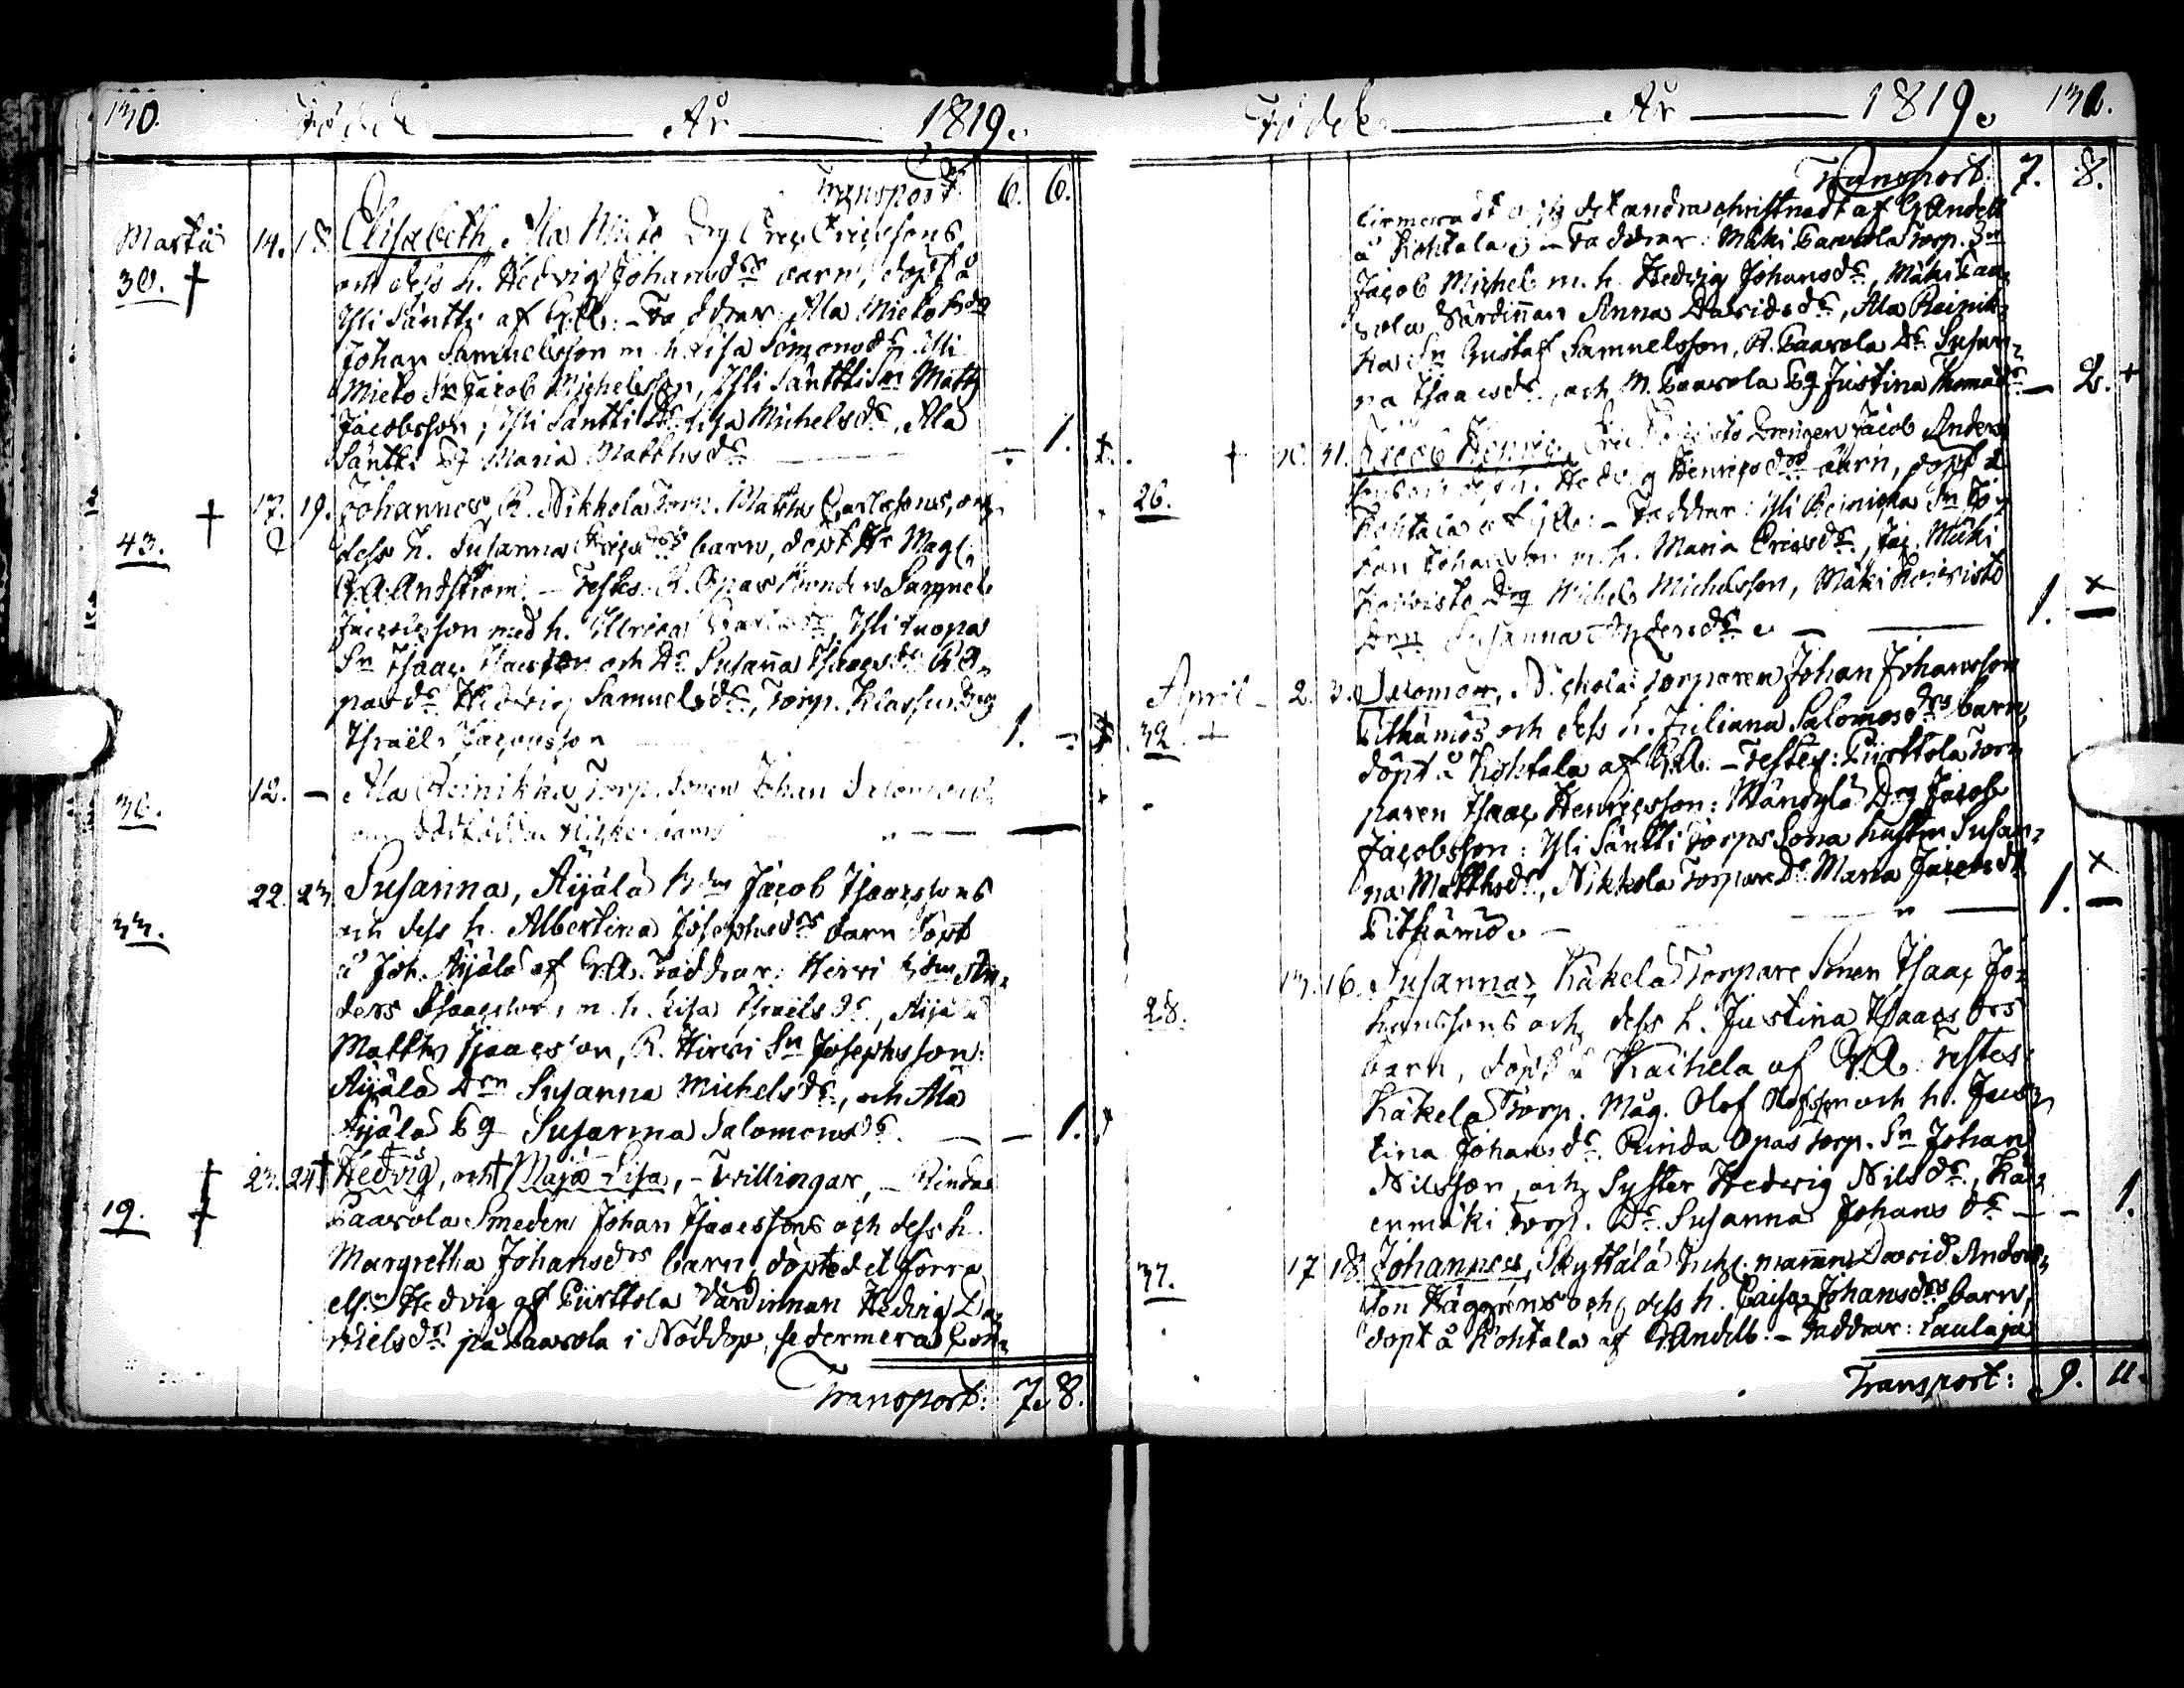 130. Födde År 1819.
Transport: 6. 6.
Martii 14. 18. Elisabeth, Ala Mieto Drg Eric Ericssons
30. † och dess h. Hedvig Johansdrs barn, döpt å
Yli Säntti af G.A. – Faddrar: Ala Mieto
Johan Samuelsson m. h. Lisa Simonsdr Yli
Mieto Sn Jacob Michelsson, Yli Säntti Sn Matts
Jacobsson, Yli Säntti Dr Lisa Michelsdr, Ala
Säntti Pg Maria Matthsdr — – 1.
† 17. 19. Johannes, R. Nikkola Torp. Matths Carlssons, och
43. dess h. Susanna Ericsdrs barn, döpt Hr Mag.
– Testes: R. Opas Bonden Samuel
Jacobsson med h. Ulrica Yli Luopa
Sn Isaac Isacsson och Dr Susanna Isaacsdr R. O-
pas dr Hedvig Samuelsdr, Torp. Klassus Drg
Israel Jacobsson 1. –
36. 12. – Ala Reinikka Torp. Sonen Johan Salomons
—
22. 23 Susanna, Äijälä Bdn Jacob Isaacssons
33. och dess h. Albertina Josephsdrs barn döpt
å Joh. Äijälä af G.A. Faddrar: Hirvi Bdn An-
ders Isaacsson, m. h. Lisa Israelsdr, Äijälä
Matths Isaacsson, R. Hirvi Sn Josephsson:
Äijälä Drn Susanna Michelsdr, och Ala
Äijälä Pg Susanna Salomonsdr. — – 1.
† 23. 24 † Hedvig, och † Maja Lisa, – Twillingar, – Rinda
19. † Paavola Smeden Johan Isaacssons och dess h.
Margretha Johansdrs barn, döpte det förra
ell. Hedvig af Piirttola Värdinnan Hedvig Da-
nielsdr på Paavola i Nöddop, sedermera Con-
Transport: 7. 8.
Födde År 1819. 131.
Transport: 7. 8.
firmeradt och det andra christnadt af G. Andell
å Kohtala; – Faddrar: Mäki Paavola Torp. Sn
Jacob Michels. m. h. Hedvig Johansdr, Mäki Paa-
vola Värdinnan Anna Davidsdr, Ala Reinik-
ka Sn Gustaf Samuelsson, R. Paavola Dr Susan-
na Isaacsdr, och M. Paavola Pg Justina Thomasdr — 2. +
† 30. 31. Jacob Henric, Koivisto Drengen Jacob Anders
26. sons och dess h. Hedvig Henricsdrs barn, döpt å
Kohtala af G.A. – Faddrar: Yli Reinikka Sn
Johansson m. h. Maria Ericsdr, Jac. Mäki
Koivisto Drg Michel Michelsson, Mäki Koivisto
Susanna Andersdr. — 1. —
April – 2. 3. Salomon, Nickola Torparen Johan Johansson
32. Pitkämös och dess h. Juliana Salomonsdrs barn,
döpt å Kohtala af G.A. – Testes: Piirttola Torp
paren Isaac Henricsson: Mäntylä Drg Jacob
Jacobsson: Yli Säntti Torpars Sona hustru Susan-
na Matthsdr, Nikkola Torpare Dr Maria Jacobsdr
Pitkämö. — 1. —
13. 16. Susanna, Käkelä Torpare Sonen Isaac Jo-
28. hanssons och dess h. Justina Isaacs drs
barn, döpt å Kaihela af G.A. Testes:
Käkelä Torp. Måg. Olof Olofsson och h. Jus-
tina Johansdr. Rinda Opas torp. Sn Johan
Nilsson, och Syster Hedvig Nilsdr, Kä-
enmäki Torp. Dr. Susanna Johans dr — – 1.
37. 17 18. Johannes, Skyttälä Inhys. mannen David Anders-
son Häggrens och dess h. Caisa Johansdrs barn,
döpt å Kohtala af G. Andell. – Faddrar: Laulaja
Transport: 9. 11.